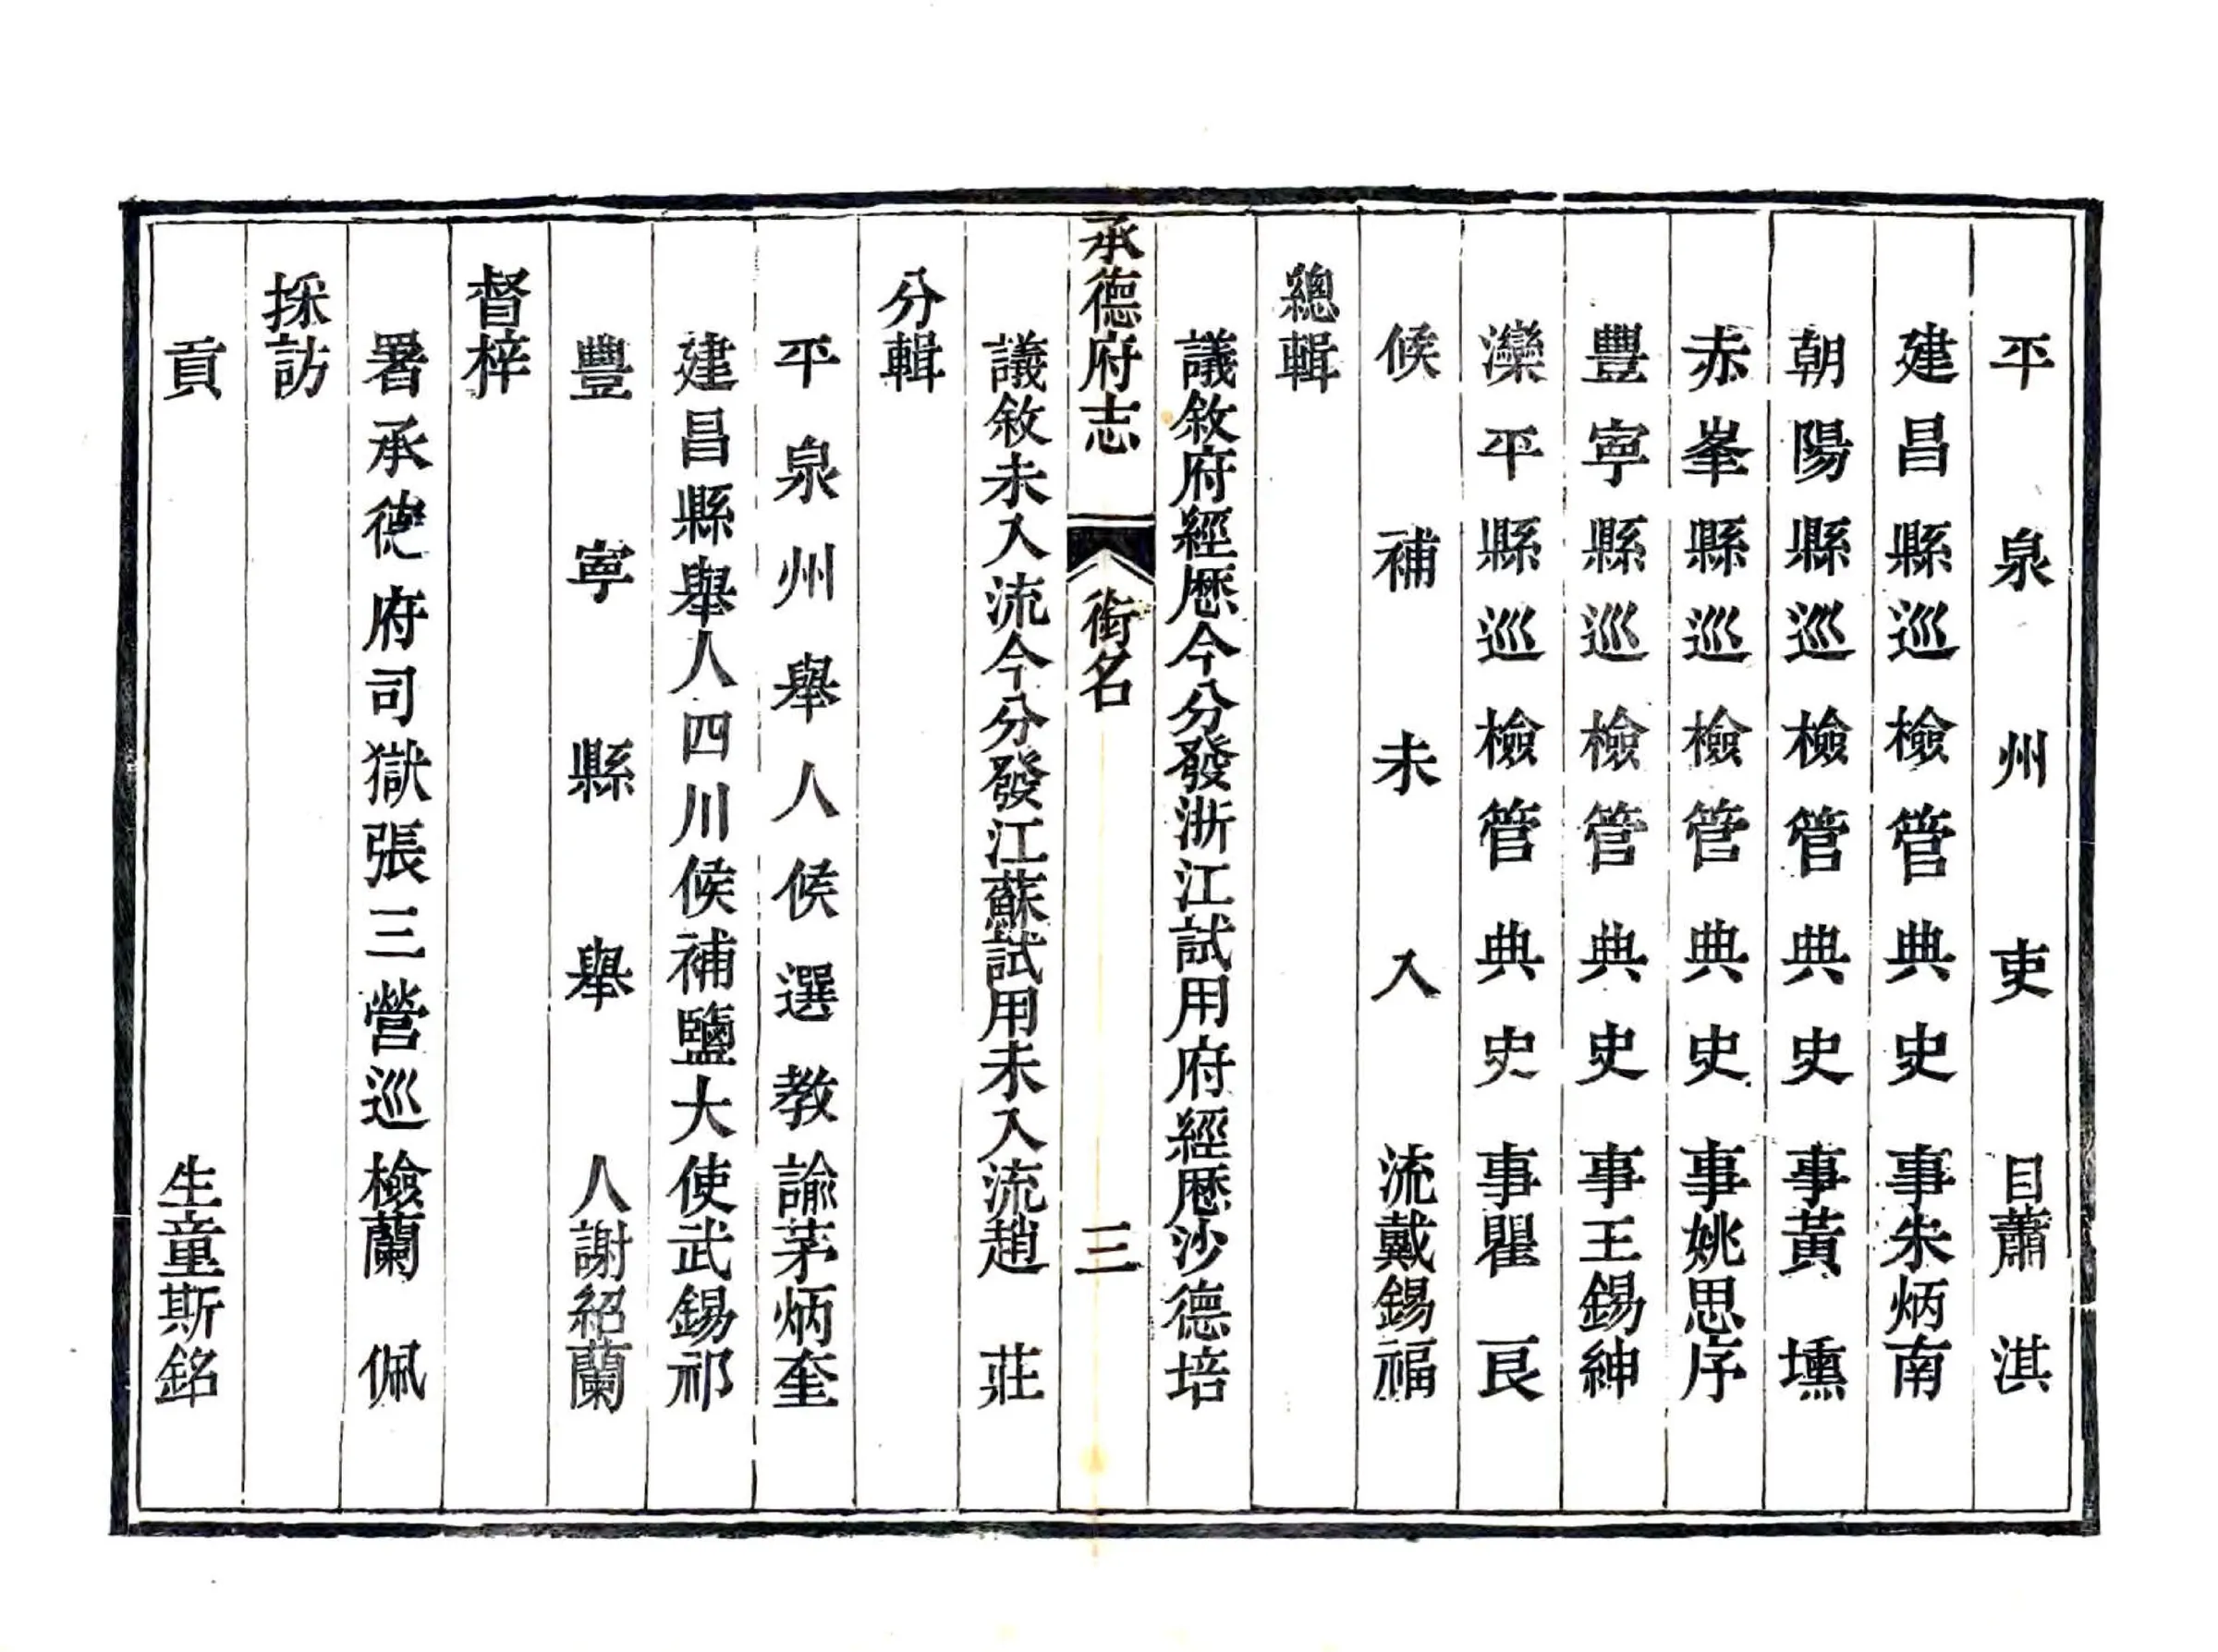 平泉州吏目蕭淇
建昌縣巡檢管典史事朱炳南
朝陽縣巡檢管典史事黃壎
赤峯縣巡檢管典史事姚思序
豐寧縣巡檢管典史事王錫紳
灤平縣巡檢管典史事瞿良
候補未入流戴錫福
總輯
議敘府經歷今分發浙江試用府經歷沙德培
承德府志 銜名 三
議敘未入流今分發江蘇試用未入流趙莊
分輯
平泉州舉人候選教諭茅炳奎
建昌縣舉人四川候補鹽大使武錫祁
豐寧縣舉人謝紹蘭
督梓
署承德府司獄張三營巡檢蘭佩
採訪
貢生童斯銘